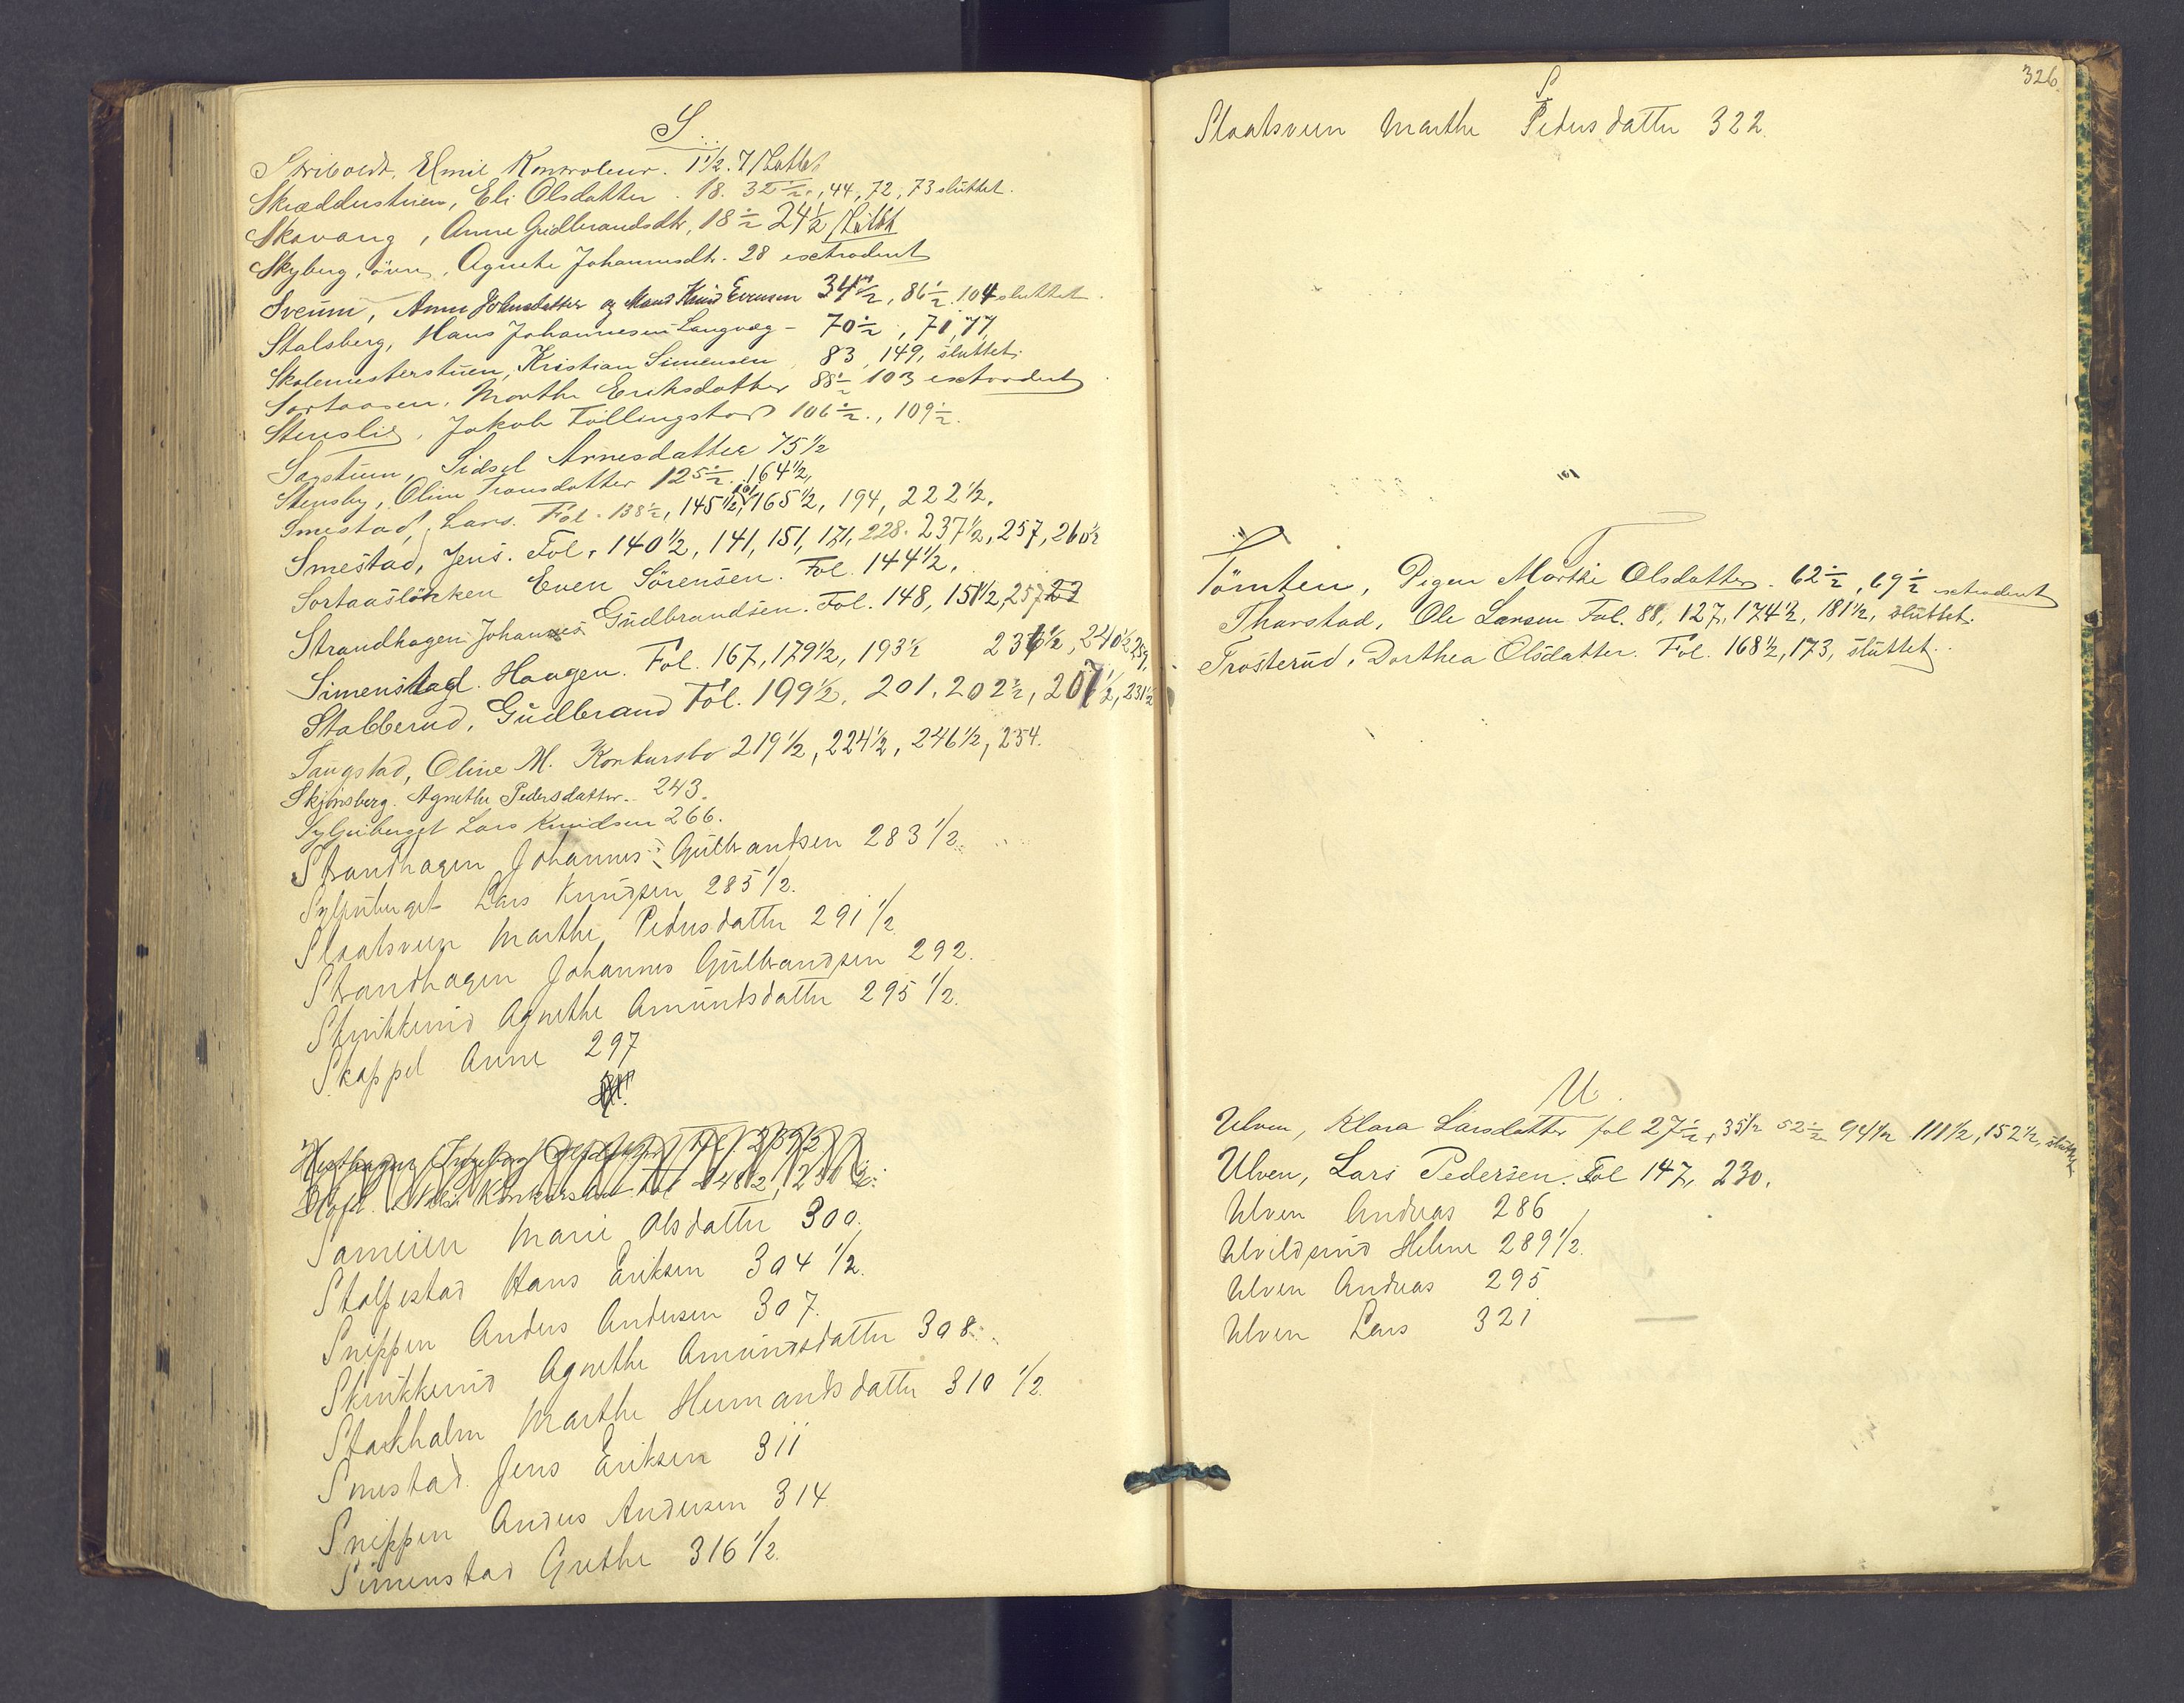 S.
Emil Kontroleur. 1 1/2. 7 sluttet
Skrædderstuen, Eli Olsdatter. 18. 32 1/2, 44, 72, 73 sluttet.
Skavang, Anne Gudbrandsdtr, 18 1/2 24 1/2 sluttet
Skyberg, övre, Agnethe Johannesdtr. 28 extraderet
Sveum, Anne Johnsdatter og Mand Knud Evensen 34 1/2, 86 1/2. 104 sluttet.
Stalsberg, Hans Johannesen Langvæg - 70 1/2, 71, 77,
Skolemesterstuen, Kristian Simensen, 83, 149, sluttet.
Sortaasen, Marthe Eriksdatter 88 1/2 103 extraderet
Stenslie, Jakob Föllingstad 106 1/2., 109 1/2.
Sidsel Arnesdatter 75 1/2
Stensby, Oline 125 1/2. 164 1/2,
Smestad, Lars. Fol. 138 1/2, 145 1/2, 161, 165 1/2, 194, 222 1/2.
Smestad, Jens. Fol. 140 1/2, 141, 151, 171, 228. 237 1/2, 257, 260 1/2
Sortaaslökken Even Sörensen. Fol. 144 1/2.
Strandhagen Johannes Gudbrandsen. Fol. 148, 158 1/2, 257
Simenstad. Haagen. Fol. 167, 179 1/2, 193 1/2 236 1/2, 240 1/2 259,
Stabberud, Gudbrand Fol. 199 1/2, 201, 202 1/2, 207 1/2, 231 1/2
Saugstad, Oline M. Konkursbo 219 1/2, 224 1/2, 246 1/2, 254.
Skjönsberg. Agnethe Pedersdatter. 243.
Syljuberget Lars Knudsen 266.
Strandhagen Johannes Gulbrandsen 283 1/2.
Syljuberget Lars Knudsen 285 1/2.
Slaatsveen Marthe Pedersdatter 291 1/2
Strandhagen Johannes Gulbrandsen 292.
Skrikkerud Agnethe Amundsdatter 295 1/2.
Skappel Anne 297
Hesthagen Ingeborg Olsdatter Fol. 239 1/2
Konkursbo. Fol 248 1/2, 250 1/2.
Sameien Marie Olsdatter 300.
Stalpestad Hans Eriksen 304 1/2.
Sneppen Anders Andersen 307.
Skrikkerud Agnethe Amundsdatter 308.
Stockholm Marthe Hermandsdatter 310 1/2.
Smestad. Jens Eriksen 311
Sneppen Anders Andersen 314
Simenstad Grethe 316 1/2.
326.
S
Slaatsveen Marthe Pedersdatter 322.
T
Tömten, Pigen Marthe Olsdatter. 62 1/2, 69 1/2 extraderet
Tharstad, Ole Larsen Fol. 88, 127, 174 1/2, 181 1/2, sluttet.
Trosterud, Dorthea Olsdatter. Fol. 168 1/2, 173, sluttet.
U.
Ulven, Klara Larsdatter fol 27 1/2, 35 1/2 52 1/2 94 1/2 111 1/2, 152 1/2, sluttet
Ulven, Lars Pedersen. Fol 147, 230.
Ulven Andreas 286
Ulvildsrud Helene 289 1/2.
Ulven Andreas 295
Ulven Lars 321